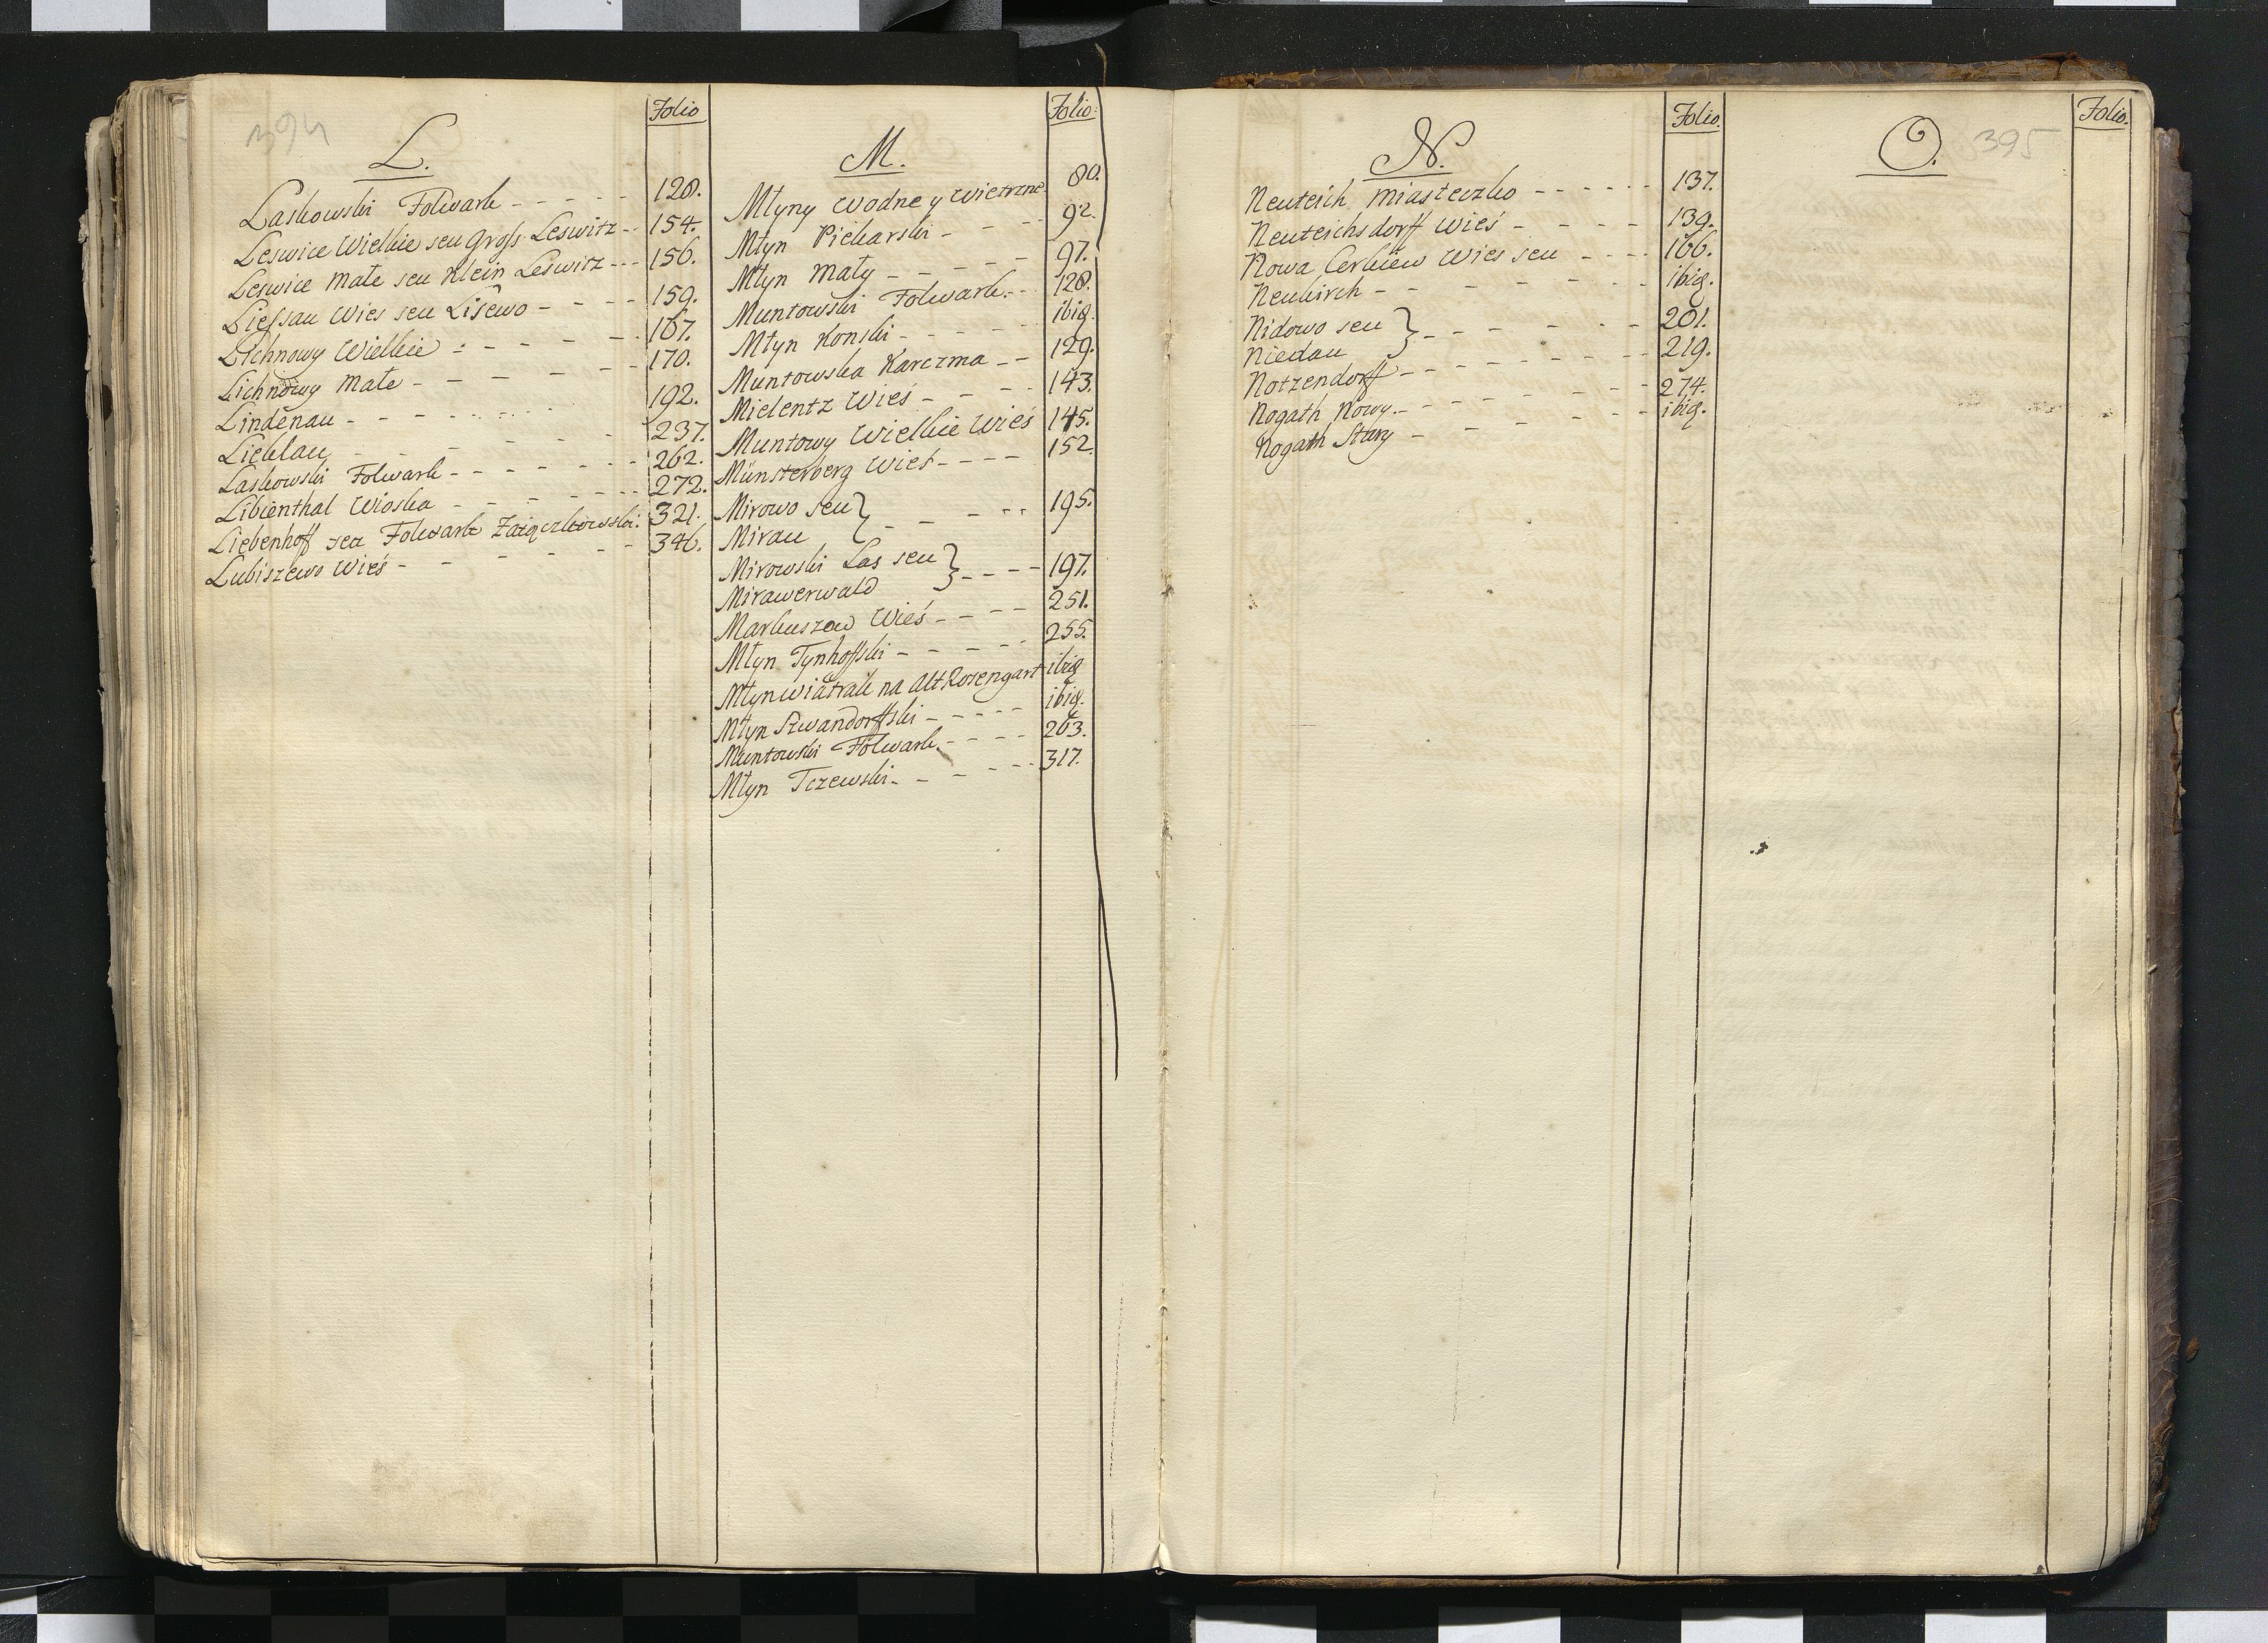 394
Folio
L.
Laskowski Folwark - - - - - 128.
Leswice Wielkie seu Gross Leswitz - - 154.
Leswice Małe seu Klein Leswitz - - - 156.
Liessau Wies seu Lisewo - - - - 159.
Lichnowy Wielkie - - - - - 167.
Lichnowy Małe - - - - - - 170.
Lindenau - - - - - - 192.
Lieblau - - - - - 237.
Laskowski Folwark - - - - - - - 262.
Libienthal Wioska - - - - - - 272.
Liebenhoff seu Folwark Zaiączkowski. 321.
Lubiszewo Wieś - - - - - 346.
Folio.
M.
Młyny Wodne y Wietrzne 80.
Młyn Piekarski - - - - 92.
Młyn Mały - - - - - 97.
Muntowski Folwark. - - 128.
Młyn Konski - - - - - ibid.
Muntowska Karczma - - 129.
Mielentz Wieś - - - - 143.
Muntowy Wielkie Wieś 145.
Münsterberg Wieś - - - - 152.
Mirowo seu }
Mirau } - - - - - 195.
Mirowski Las seu }
Mirawerwald } - - - - 197.
Markuszow Wieś - - - - 251.
Młyn Tynhoffski - - - - - 255.
Młyn wiatrak na Alt Rosengart ibid
Młyn Szwandorffski - - - - - ibid.
Muntowski Folwark - - - - 263.
Młyn Tczewski - - - - - - 317.
Folio.
N.
Neuteich Miasteczko - - - - - - 137.
Neuteichsdorff Wieś - - - - - 139.
Nowa Cerkiew Wies seu - - - - 166.
Neukirch - - - - - - - ibid.
Nidowo seu }
Niedau } - - - - - - 201.
Notzendorff - - - - - - - 219.
Nogath Nowy - - - - - - - 274.
Nogath Stary - - - - - - ibid.
Folio.
O.
395